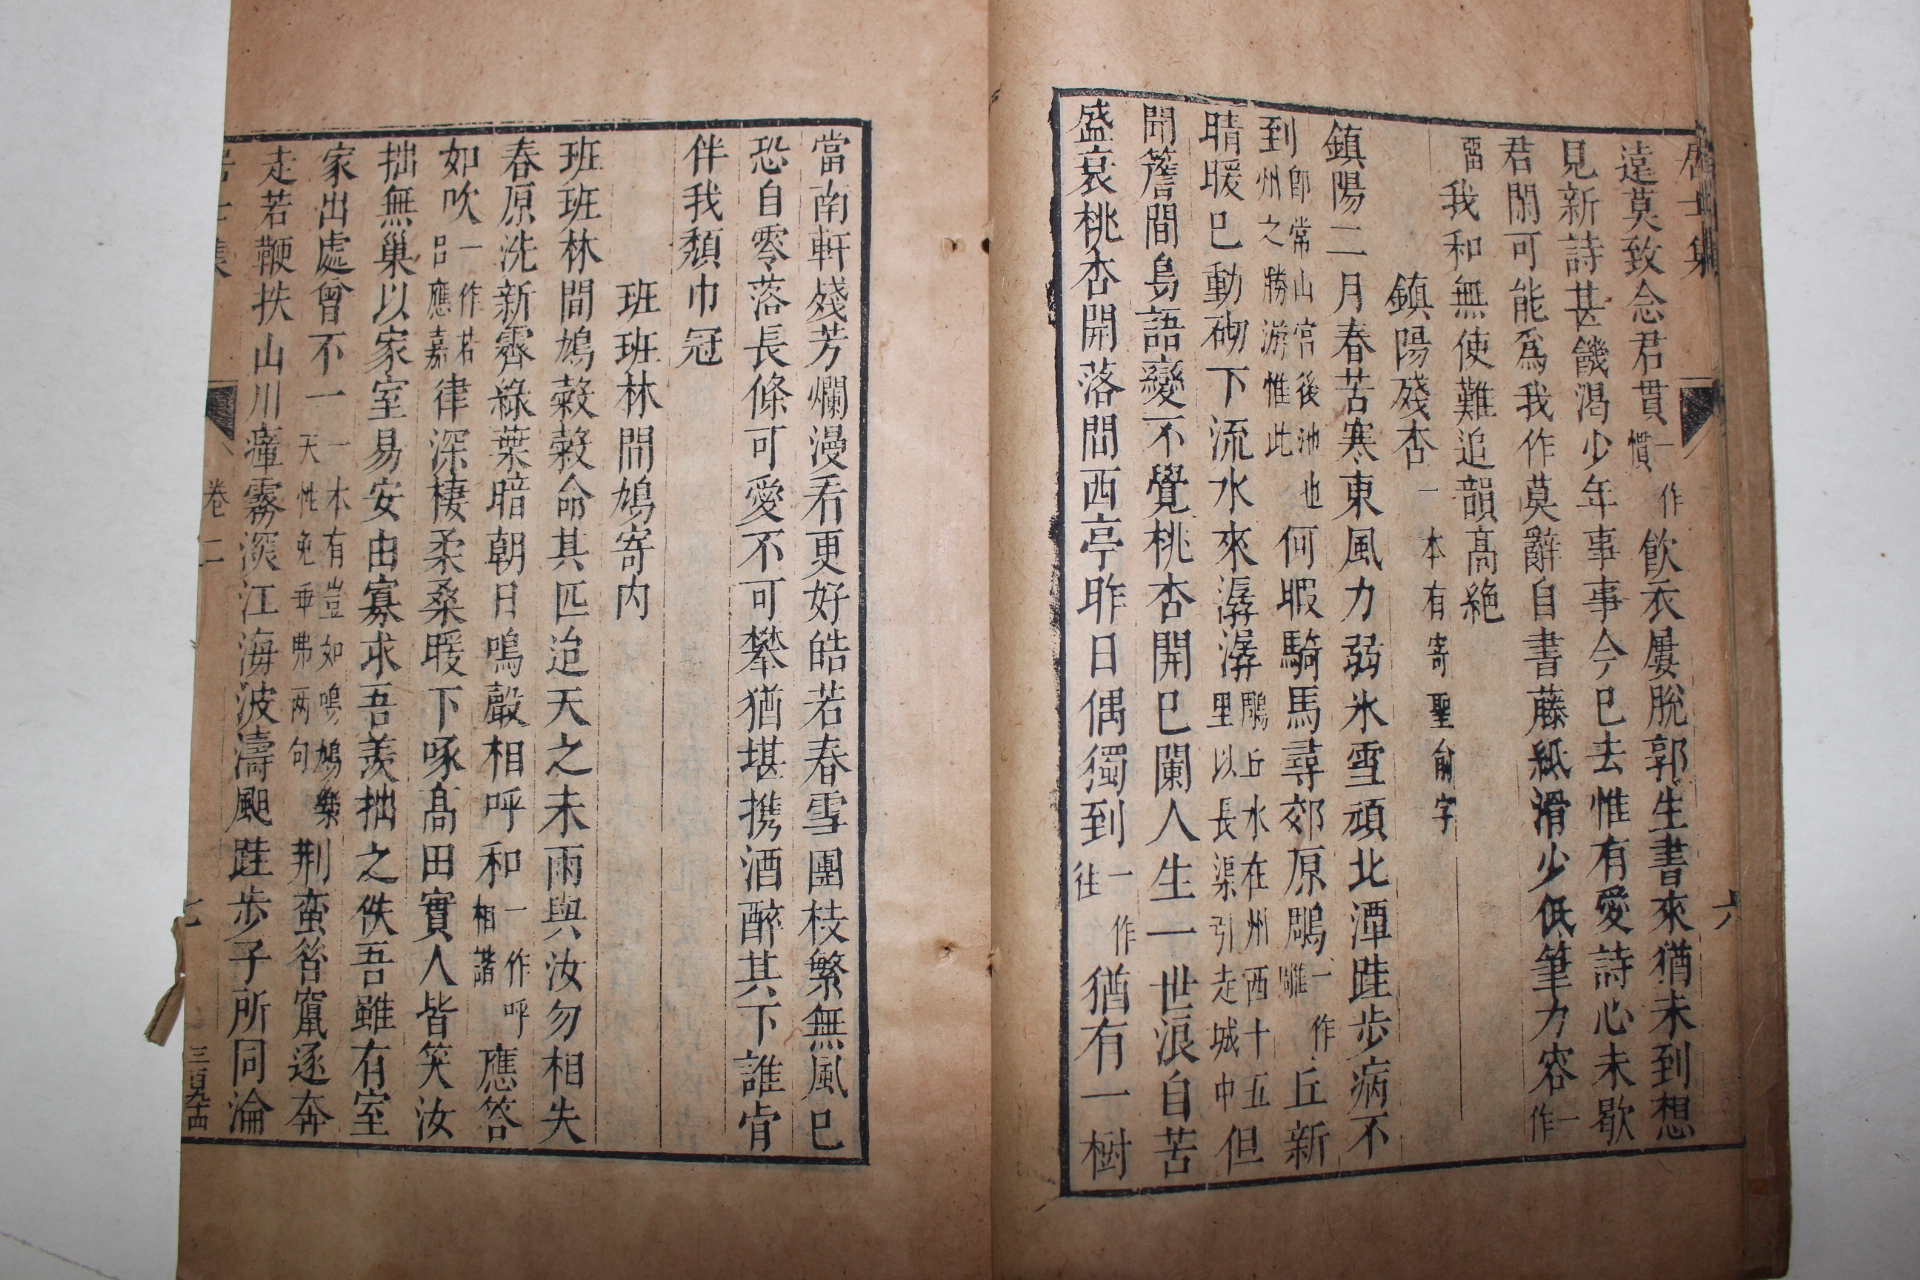 居士集
六
遠莫致念君貫一作慣飲衣屢脫郭生書來猶未到想
見新詩甚饑渴少年事事今已去惟有愛詩心未歇
君閑可能爲我作莫辭自書藤紙滑少低筆力容一作
留我和無使難追韻高絶
鎮陽殘杏一本有寄聖俞字
鎮陽二月春苦寒東風力弱氷雪頑北潭跬步病不
到即常山宫後池也州之勝游惟此何暇騎馬尋郊原鵰一作雕丘新
晴暖已動砌下流水來潺潺鵰丘水在州西十五里以長渠引走城中但
聞簷間鳥語變不覺桃杏開已闌人生一世浪自苦
盛衰桃杏開落間西亭昨日偶獨到一作往猶有一樹
當南軒殘芳爛漫看更好皓若春雪團枝繁無風已
恐自零落長條可愛不可攀猶堪携酒醉其下誰肯
伴我頽巾冠
班班林間鳩寄内
班班林間鳩穀穀命其匹迨天之未雨與汝勿相失
春原洗新霽綠葉暗朝日鳴聲相呼和一作呼相諧應答
如吹一作若吕應嘉律深棲柔桑暖下啄高田實人皆笑汝
拙無巢以家室易安由寡求吾羨拙之佚吾雖有室
家出處曾不一一本有豈如鳴鳩樂天性免乖弗兩句荆蠻昝竄逐奔
走若鞭抶山川瘴霧深江海波濤颶跬步子所同淪
居士集
卷二
七
三百九十四